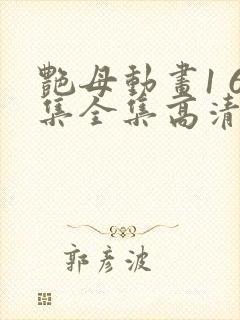 艷母動畫1 6
集全集高清
郭彥波